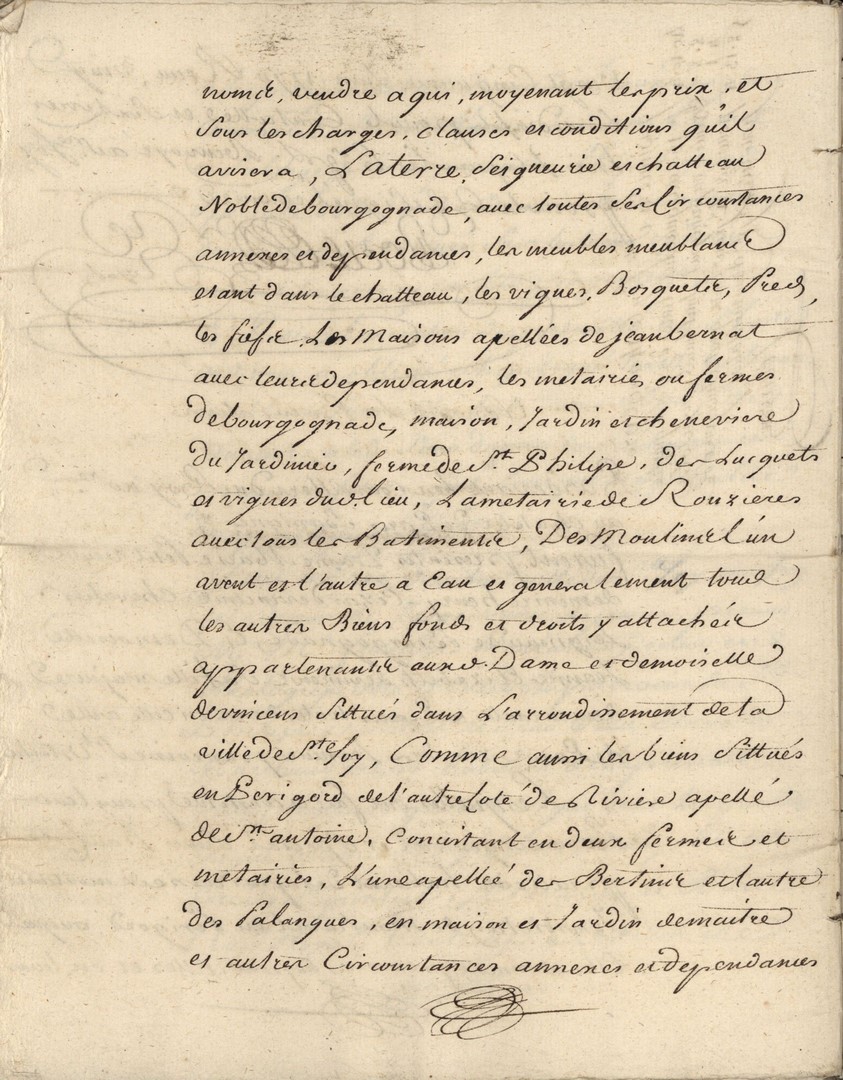 nomce, vendre a qui, moyenant les prix, et
Sous les charges, clauses et conditions qu'il
avisera, La terre, Seigneurie et chatteau
Noble de bourgognade, avec toutes ses Circonstances
annexes et dependances, les meubles meublans
etant dans le chatteau, les vignes, Bosquets, Preds,
les fiefs, Les Maisons apellées de jean bernat
avec leurs dependances, les metairies ou fermes
de bourgognade, maison, Jardin et cheneviere
du Jardinier, ferme de St. Philipe, des Lucquets
et vignes dud. lieu, La metairie de Rouzieres
avec tous les Batiments, Des Moulins l'un
a vent et l'autre a Eau et generalement tous
les autres Biens fonds et droits y attachés
appartenants auxd. Dame et demoiselle
de vincens Sittués dans L'arrondissement de la
ville de Ste. foy, Comme aussi les biens Sittués
en Perigord de l'autre Coté de Riviere apellé
de St. antoine, Concistant en deux fermes et
metairies, L'une apelleé des Bertins et l'autre
des Palanques, en maison et Jardin de maitre
et autres Circonstances annexes et dependances